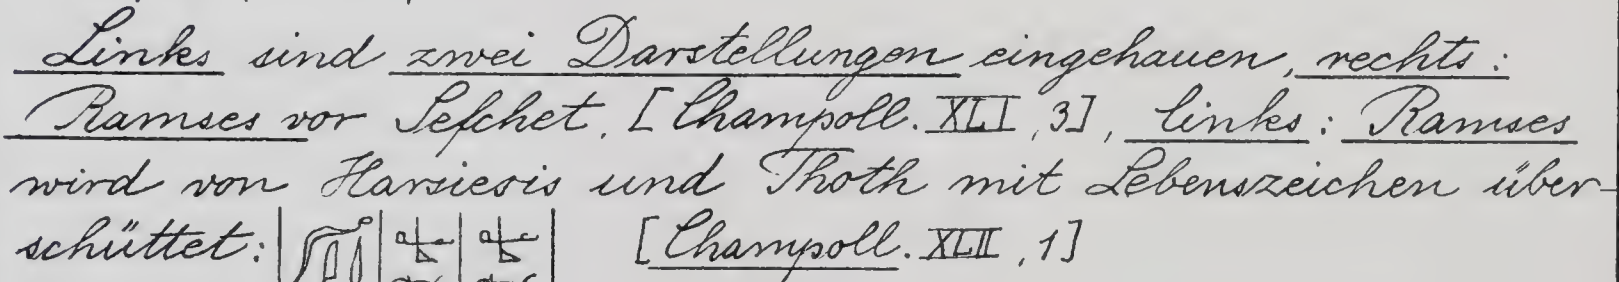 Links sind zwei Darstellungen eingehauen, rechts:
Ramses vor Sefchet. [Champoll. XLI, 3], links: Ramses
wird von Harsiesis und Thoth mit Lebenszeichen über-
schüttet: [Champoll. XLII, 1]